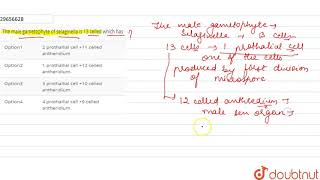 29656628
The male gametophyte of selaginella is 13 celled which has
Option1 2 prothallial cell +11 celled
antheridium
Option2 1 prothallial cell +12 celled
antheridium
Option3 3 prothallial cell +10 celled
antheridium
Option4 4 prothallial cell +9 celled
antheridium
The male gametophyte →
Selaginella → 13 cells
13 cells → 1 prothalial cell
one of the cells
produced by first division
of microspore
12 called antheredium →
male sex organ →
doubtnut